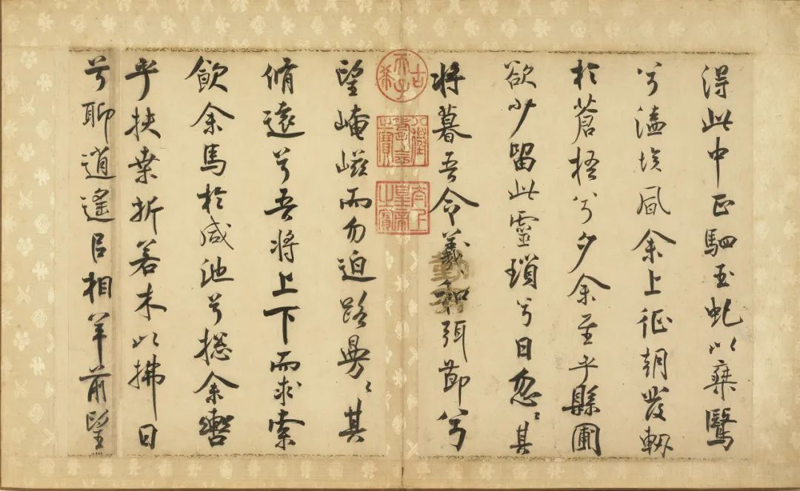 得此中正駟玉虬以乘鷖
兮溘埃風余上征朝發軔
於蒼梧兮夕余至乎縣圃
欲少留此靈瑣兮日忽〻其
將暮吾令羲和弭節兮
古希天子
八徵耄念之寶
太上皇帝之寶
望崦嵫而勿迫路曼〻其
脩遠兮吾將上下而求索
飲余馬於咸池兮揔余轡
乎扶桑折若木以拂日
兮聊逍遙以相羊前望